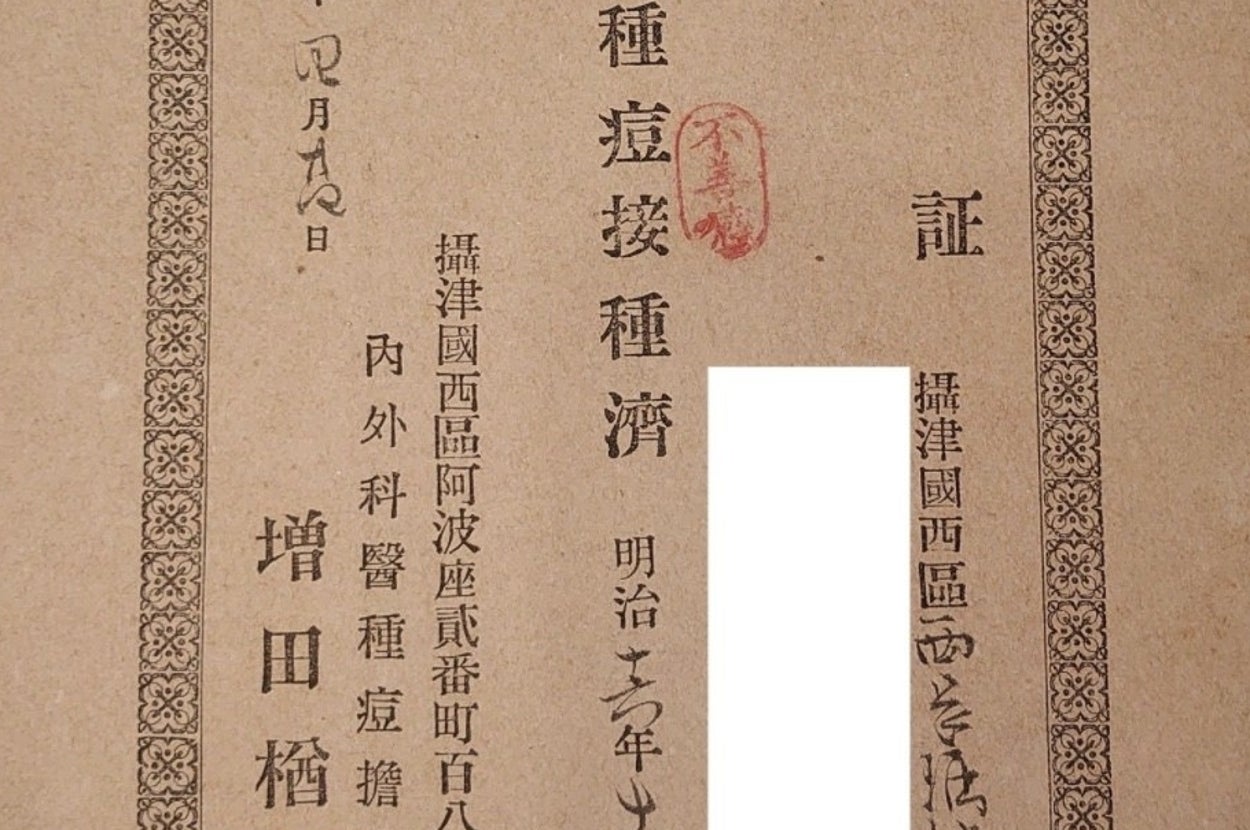 証
攝津國西區西
不善感
種痘接種濟
明治十六年十
攝津國西區阿波座貳番町百八
內外科醫種痘擔
四月
日
増田楢